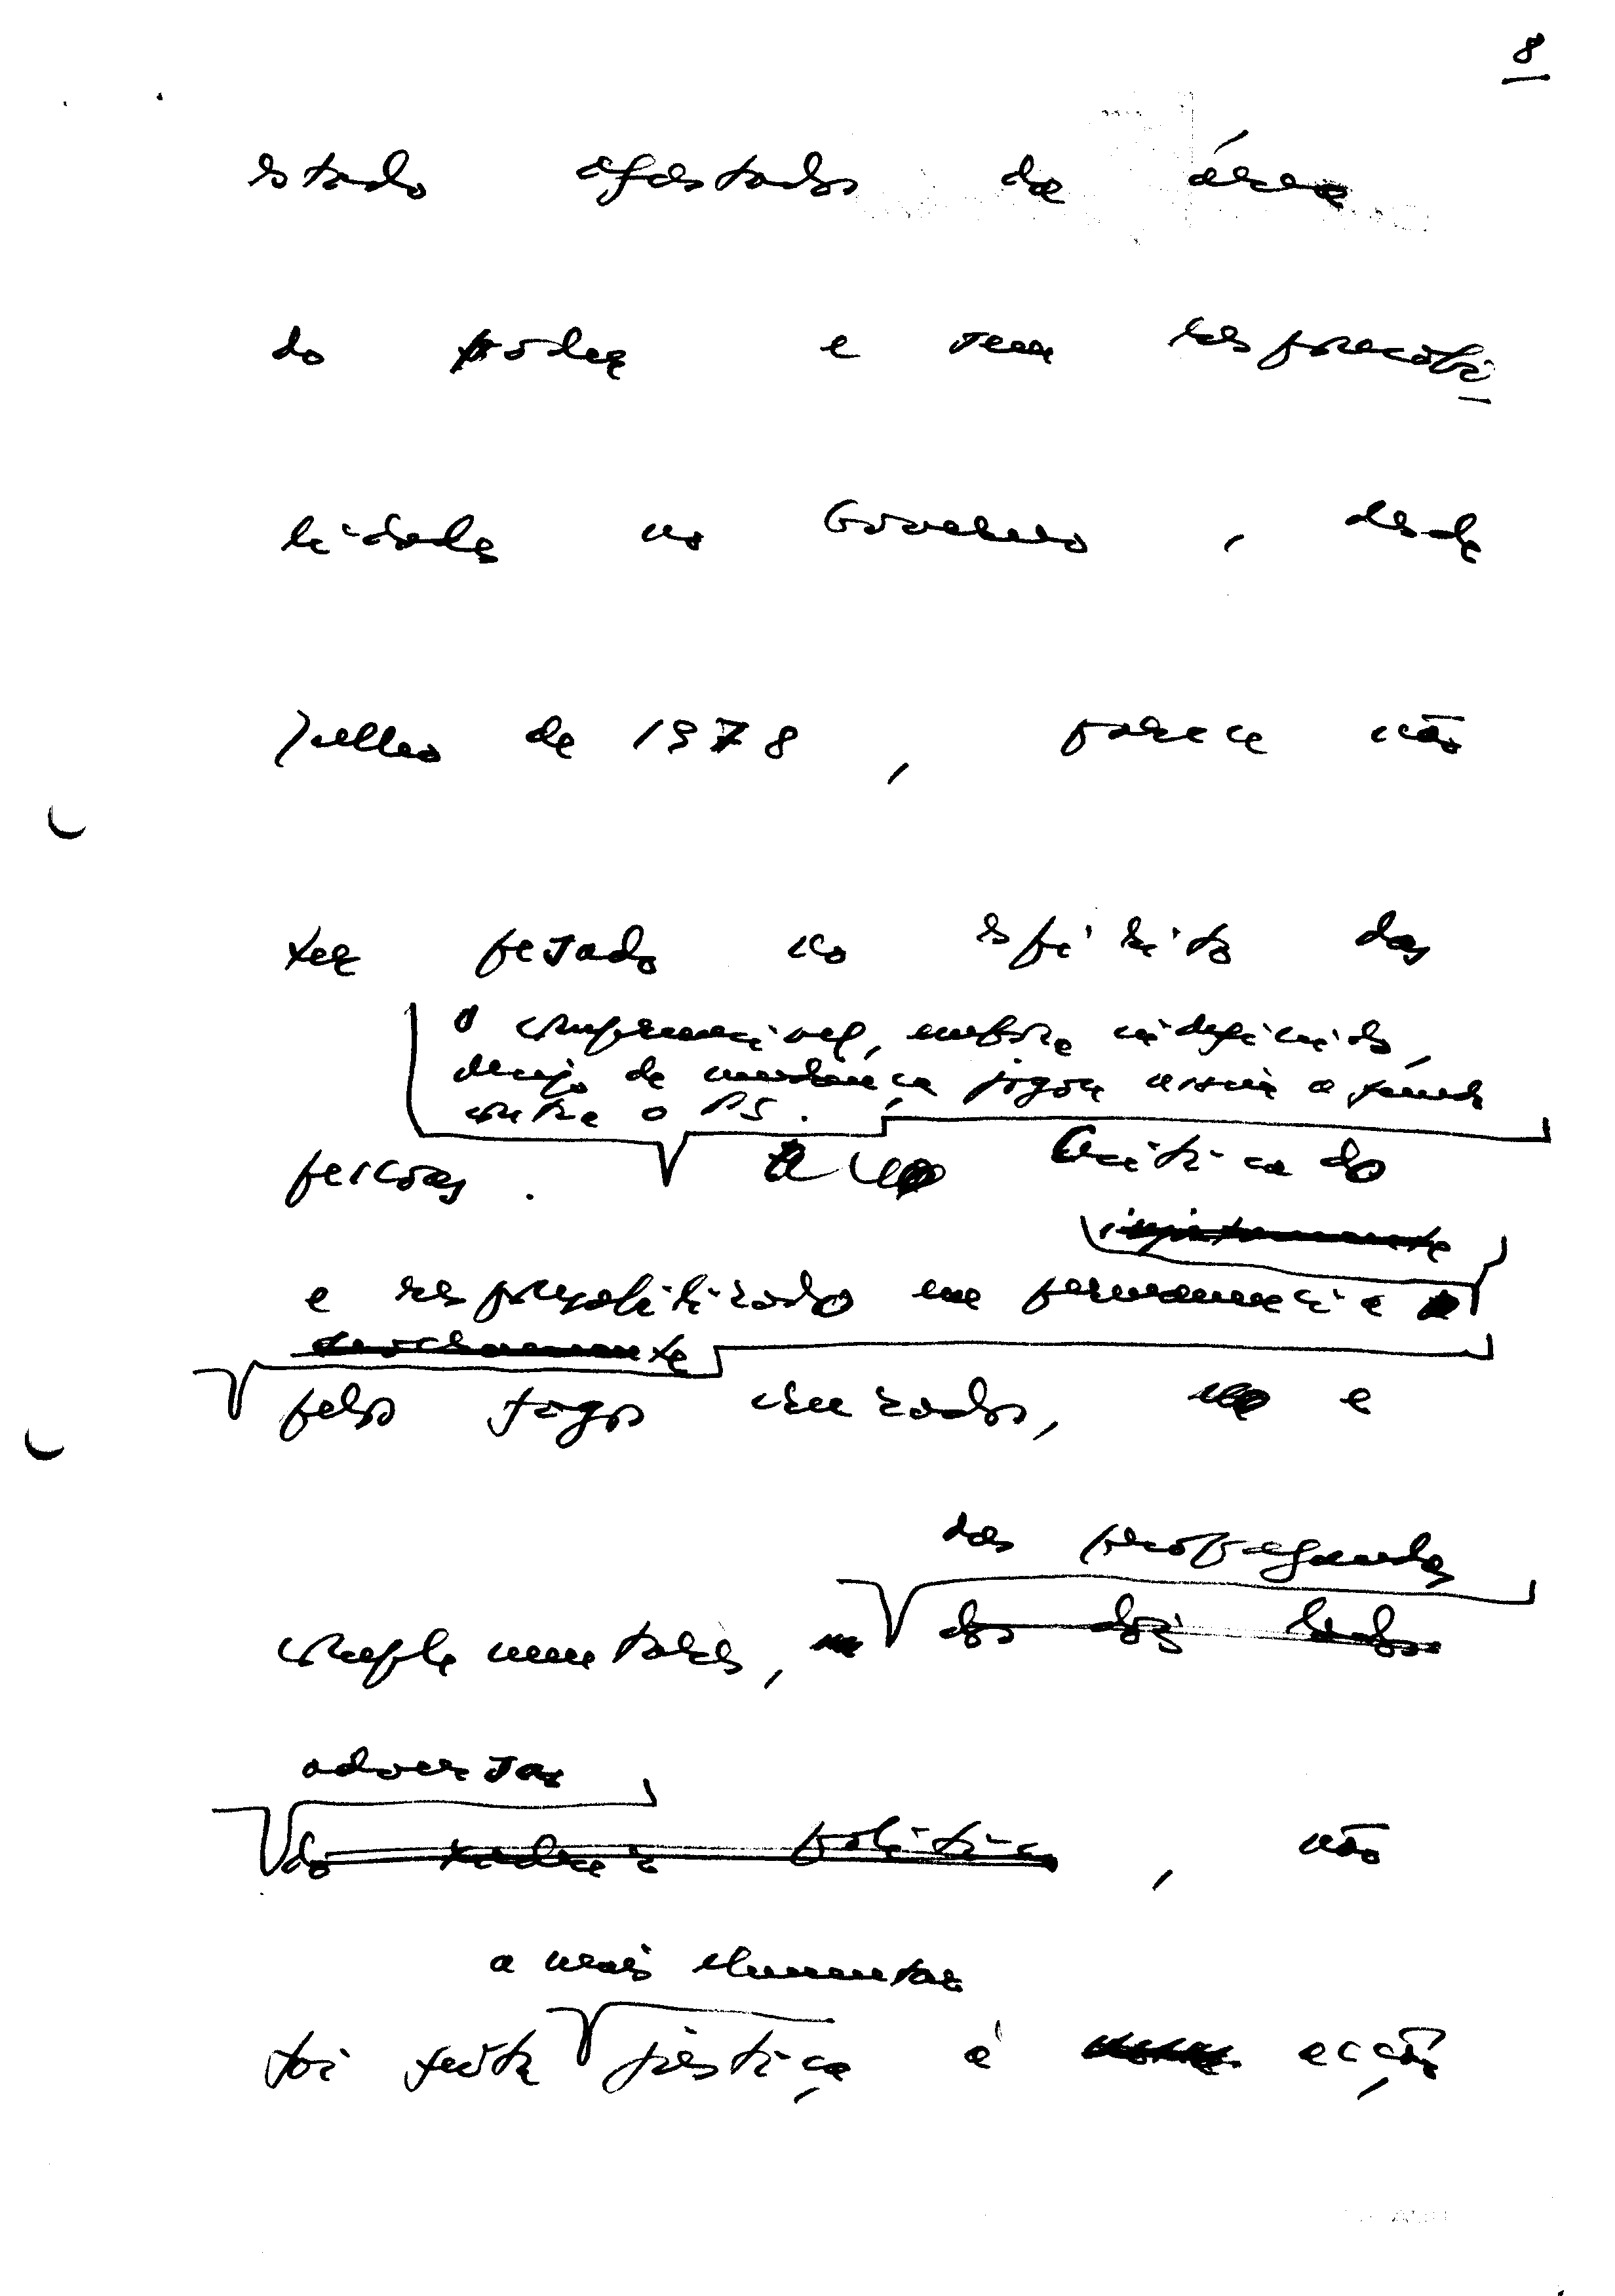 8
estado afastado da área
do poder e sem responsabi
lidades no Governo, desde
Julho de 1978, parece não
ter pesado no espírito das
O compreensível, embora indefinido,
desejo de mudança jogou assim a fundo
contra o PS.
pessoas. Criticado
injustamente
e responsabilizado em permanência
pelos jogos cruzados, e
das propagandas
complementares, dos dois lados
adversas
do xadrez político, não
a mais elementar
foi feita justiça à acção